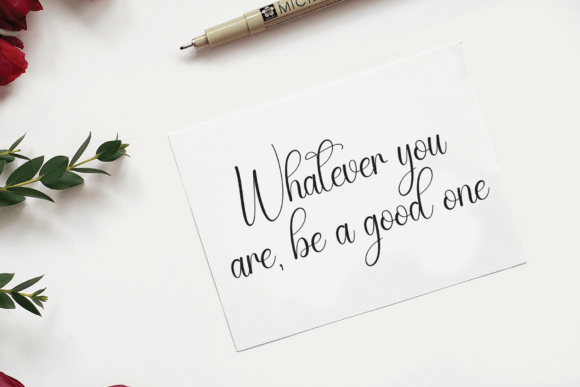 MICR
Whatever you
are, be a good one